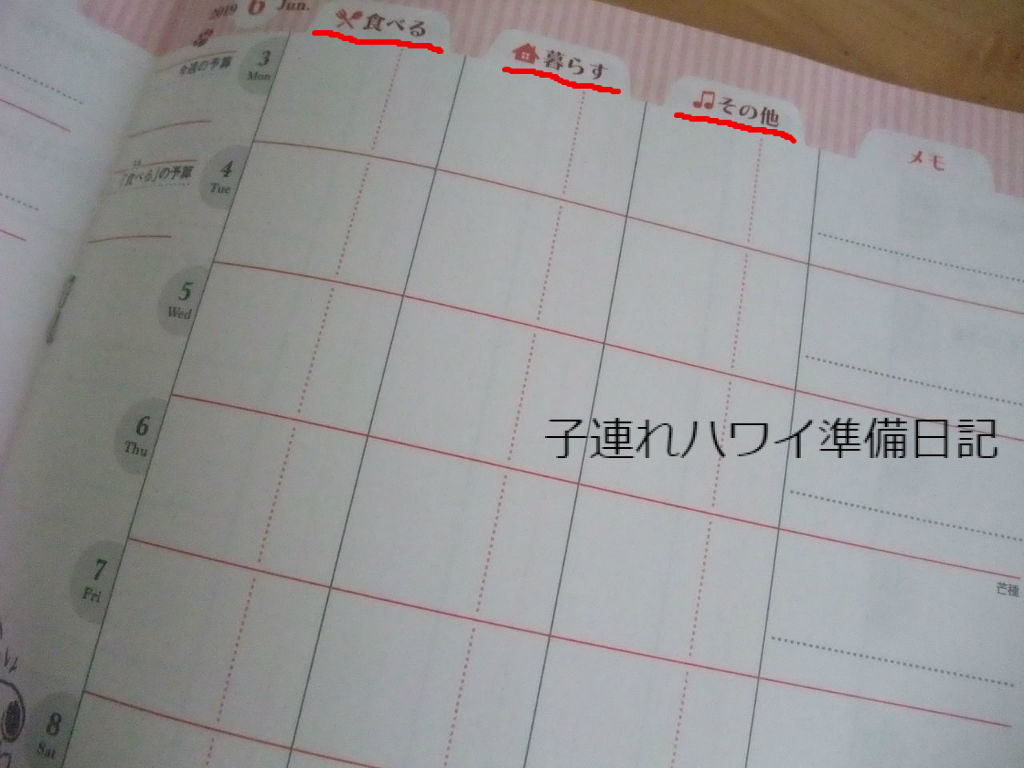 2019 6 Jun.
食べる
暮らす
その他
メモ
3
Mon
今週の予算
4
Tue
「食べる」の予算
5
Wed
6
Thu
子連れハワイ準備日記
芒種
7
Fri
8
Sat